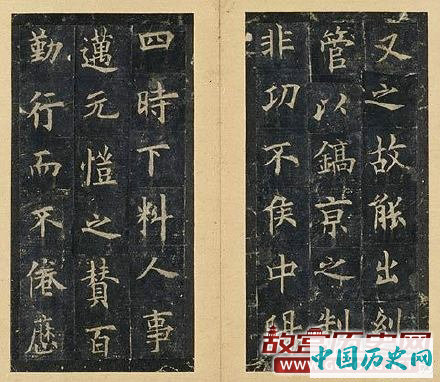 又之故能出糾
管以鎬京之制
非功不侯中
四時下料人事
邁元愷之賛百
勤行而不倦
中国历史网